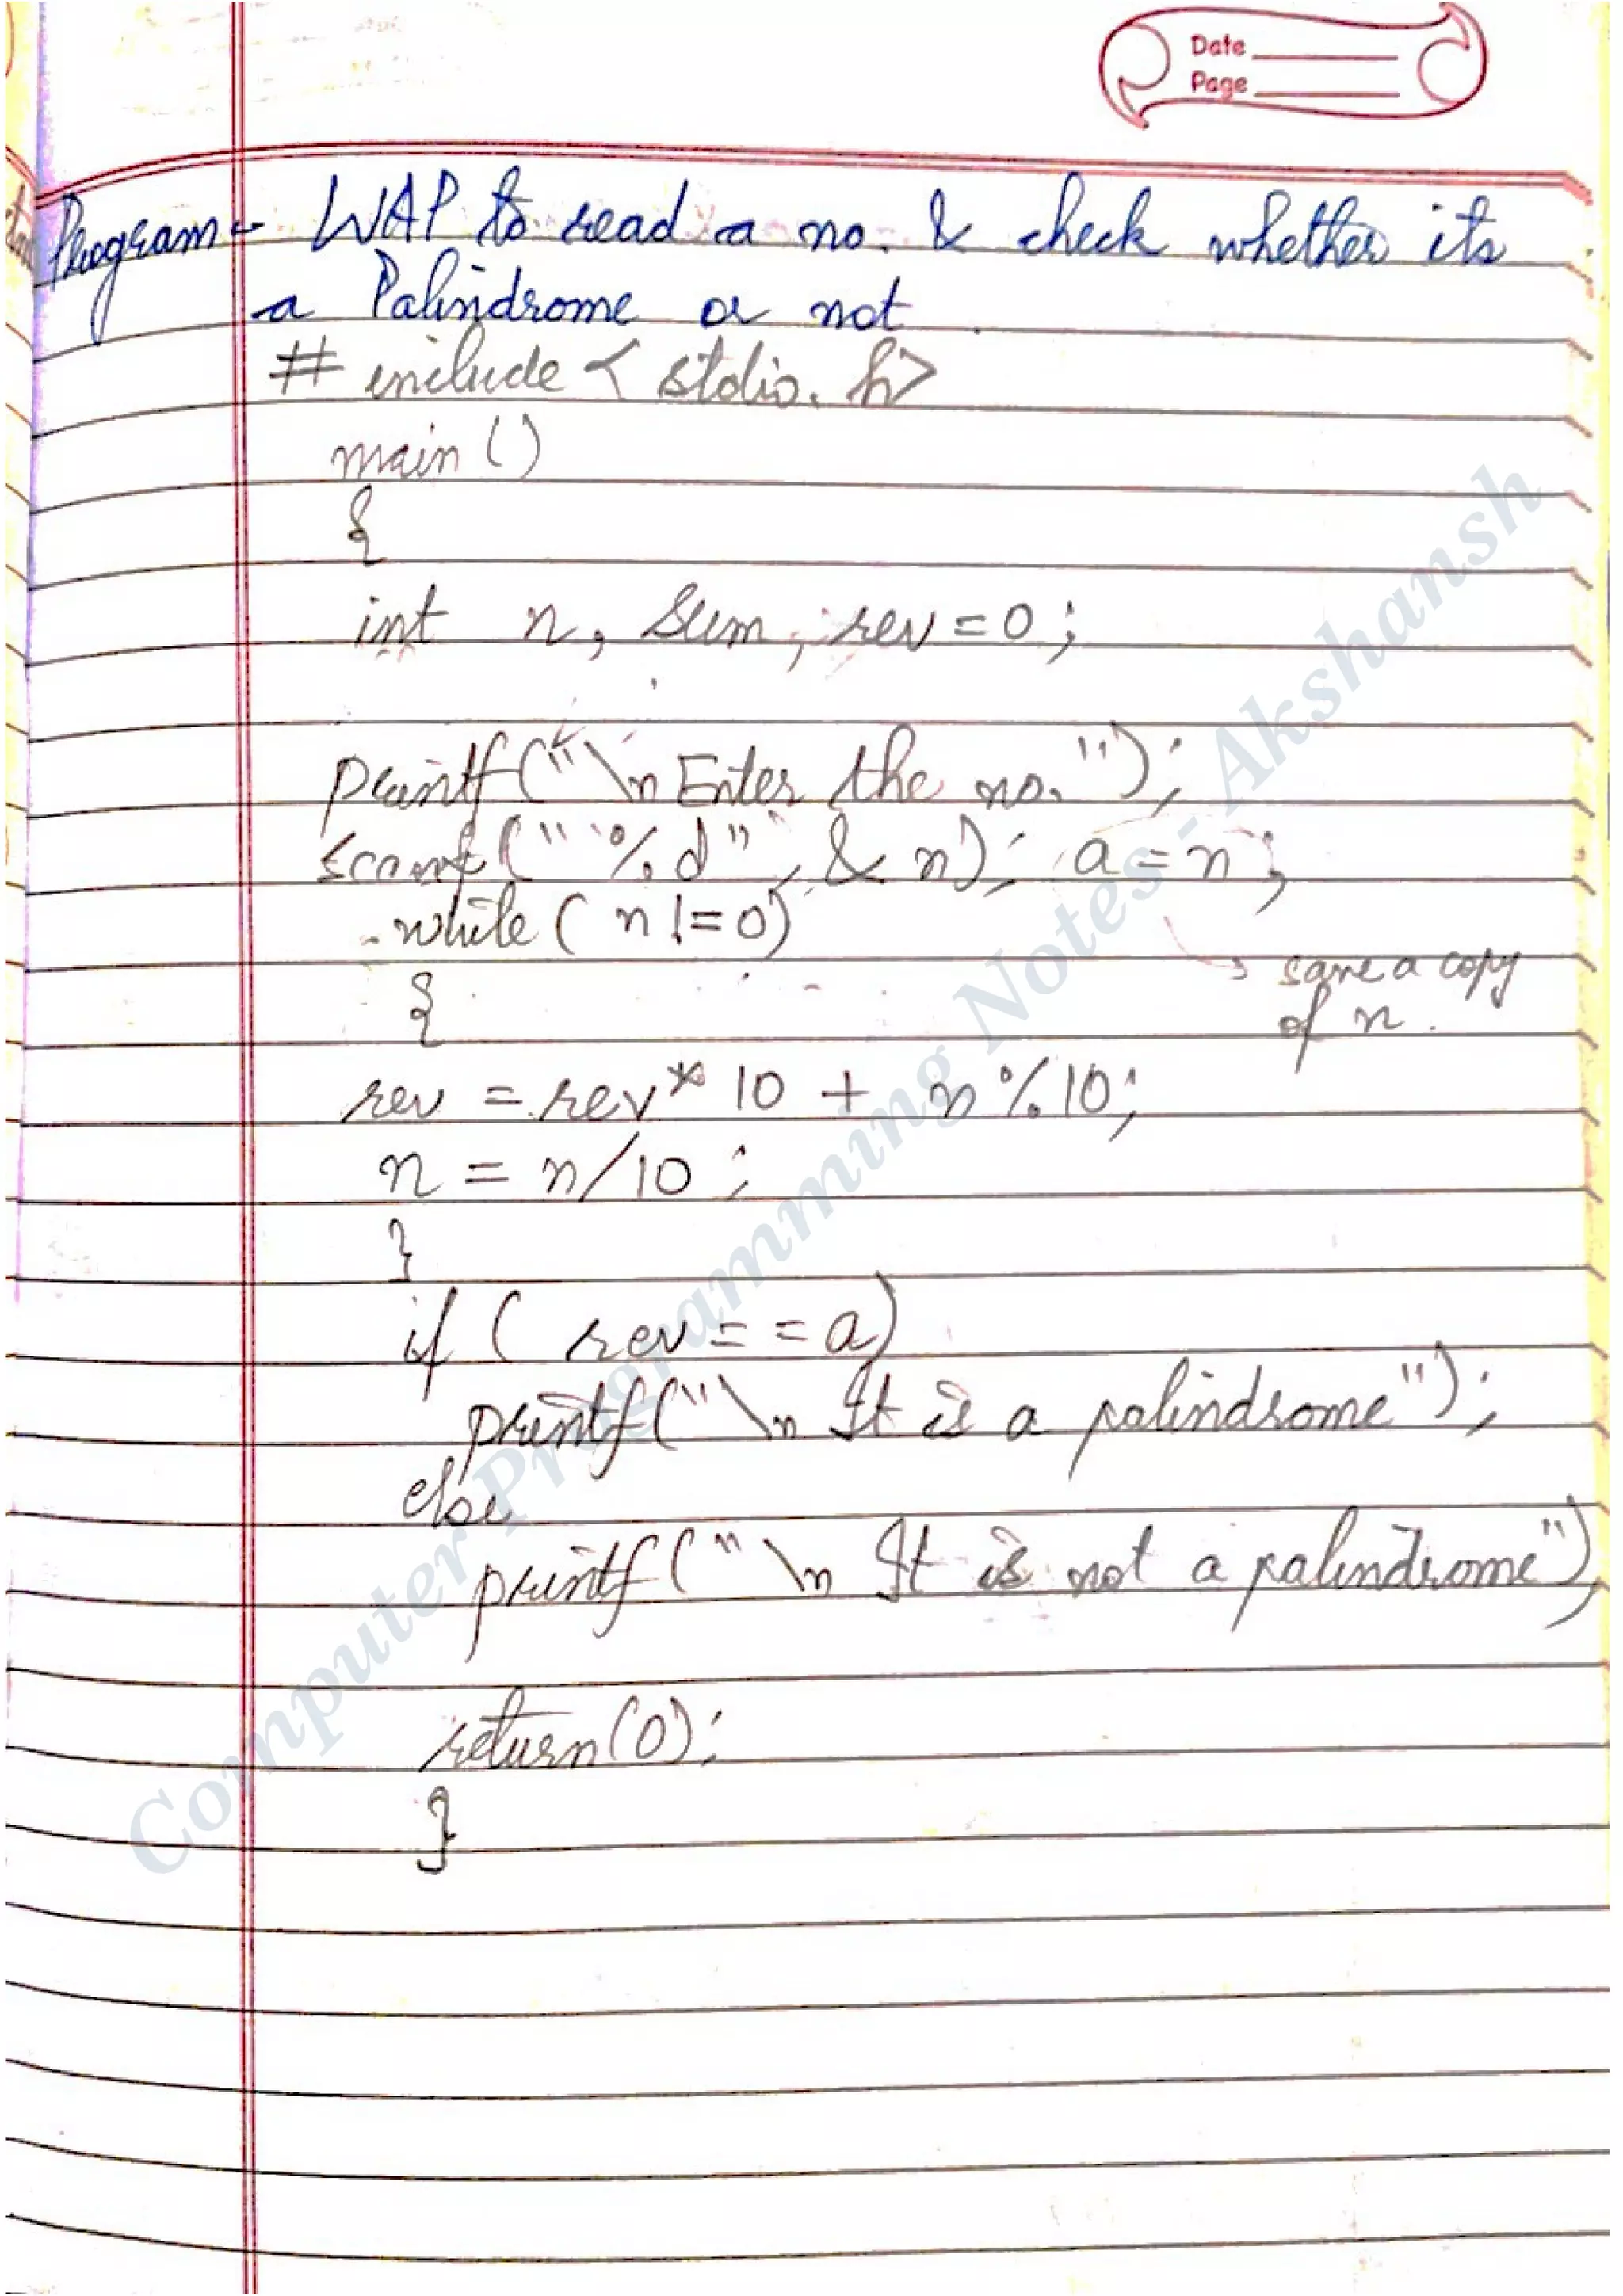 Date
Page
Program - WAP to read a no. & check whether its
a Palindrome or not
# include < stdio. h>
main ()
{
int n, sum, rev = 0 ;
printf("\n Enter the no. ");
scanf ("%d" , & n); a = n ;
while ( n != 0)
save a copy
{
of n.
rev = rev * 10 + n % 10;
n = n/10 ;
}
if ( rev = = a)
printf("\n It is a palindrome");
else
printf("\n It is not a palindrome");
return(0);
}
Computer Programming Notes - Akshansh